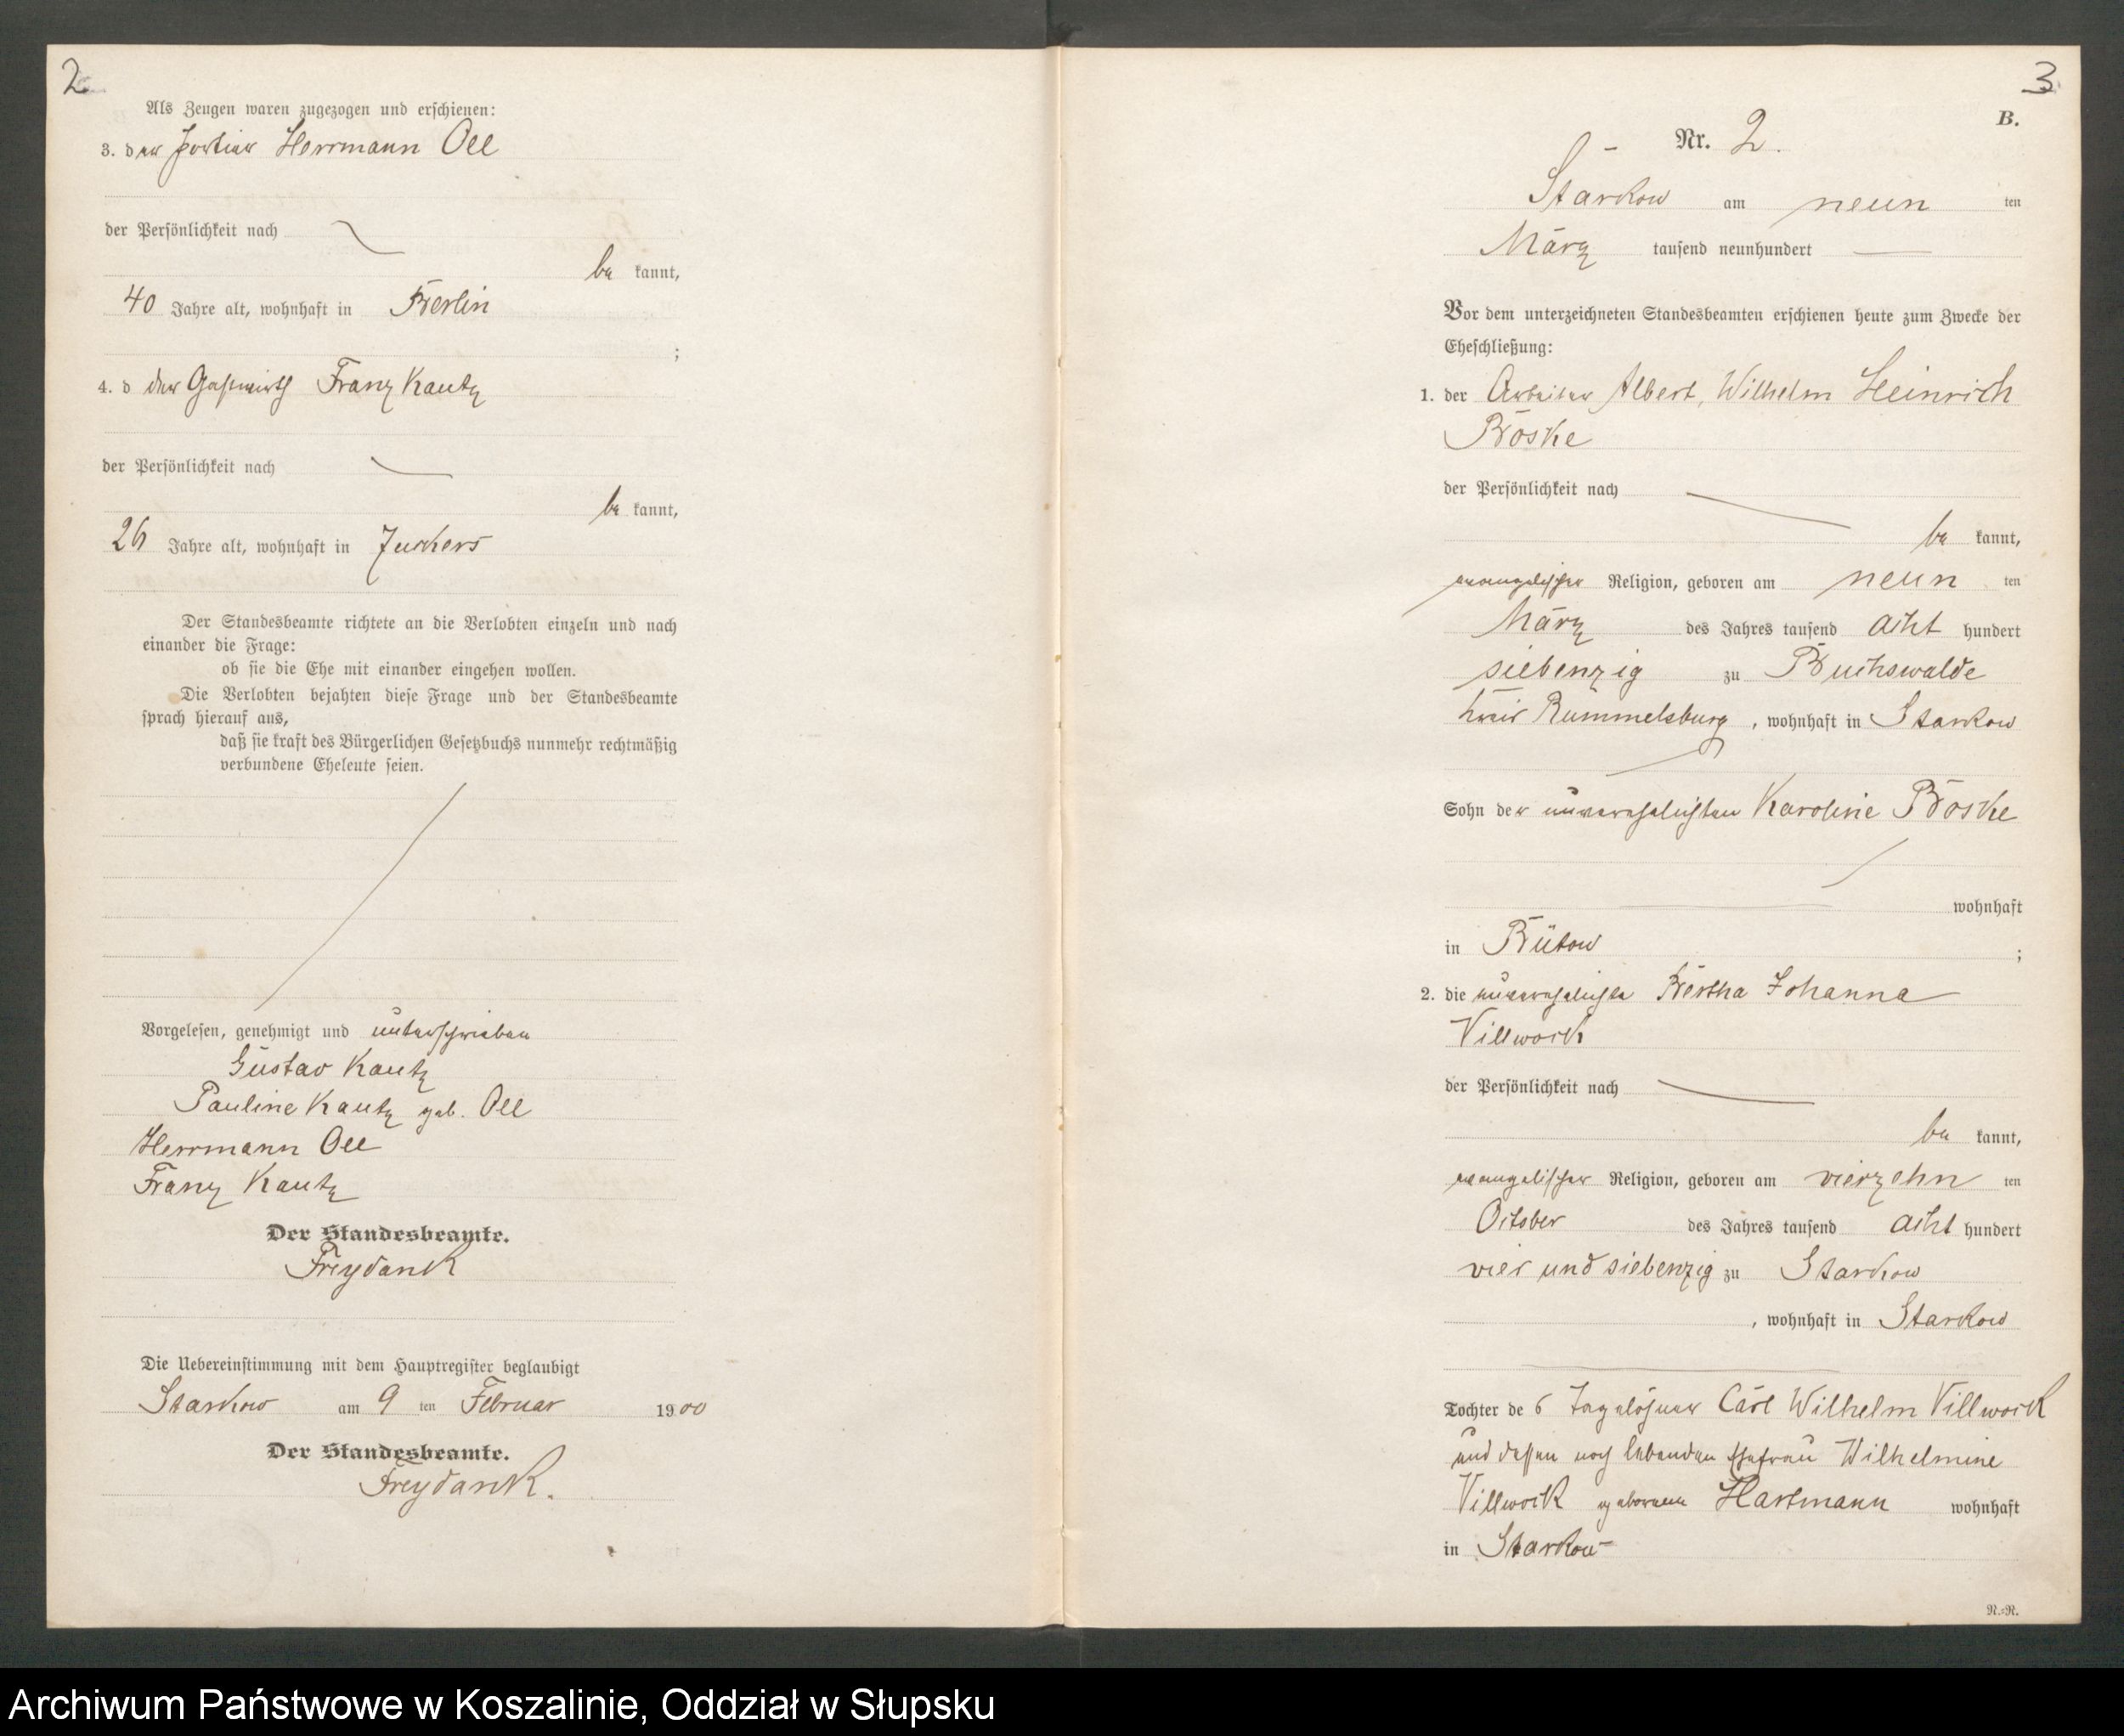 2
Als Zeugen waren zugezogen und erschienen:
3. der Portier Herrmann Oll
der Persönlichkeit nach
be kannt,
40 Jahre alt, wohnhaft in Berlin
;
4. d der Gastwirth Franz Kautz
der Persönlichkeit nach
be kannt,
26 Jahre alt, wohnhaft in
Der Standesbeamte richtete an die Verlobten einzeln und nach
einander die Frage:
ob sie die Ehe mit einander eingehen wollen.
Die Verlobten bejahten diese Frage und der Standesbeamte
sprach hierauf aus,
daß sie kraft des Bürgerlichen Gesetzbuchs nunmehr rechtmäßig
verbundene Eheleute seien.
Vorgelesen, genehmigt und unterschrieben
Gustav Kautz
Pauline Kautz geb. Oll
Herrmann Oll
Franz Kautz
Der Standesbeamte.
Freydank
Die Uebereinstimmung mit dem Hauptregister beglaubigt
Starkow am 9 ten Februar 1900
Der Standesbeamte.
Freydank.
3
B.
Nr. 2.
Starkow am neun ten
März tausend neunhundert
Vor dem unterzeichneten Standesbeamten erschienen heute zum Zwecke der
Eheschließung:
1. der Arbeiter Albert, Wilhelm Heinrich
Böske
der Persönlichkeit nach
be kannt,
evangelischer Religion, geboren am neun ten
März des Jahres tausend acht hundert
siebenzig zu Buchswalde
Kreis Rummelsburg, wohnhaft in Starkow
Sohn der unverehelichten Karoline Böske
wohnhaft
in Bütow ;
2. die unverehelichte Bertha Johanna
Villwock
der Persönlichkeit nach
be kannt,
evangelischer Religion, geboren am vierzehn ten
October des Jahres tausend acht hundert
vier und siebenzig zu Starkow
, wohnhaft in Starkow
Tochter des Tagelöhner Carl Wilhelm Villwock
und dessen noch lebenden Ehefrau Wilhelmine
Villwock geborene Hartmann wohnhaft
in Starkow
N.=R.
Archiwum Państwowe w Koszalinie, Oddział w Słupsku